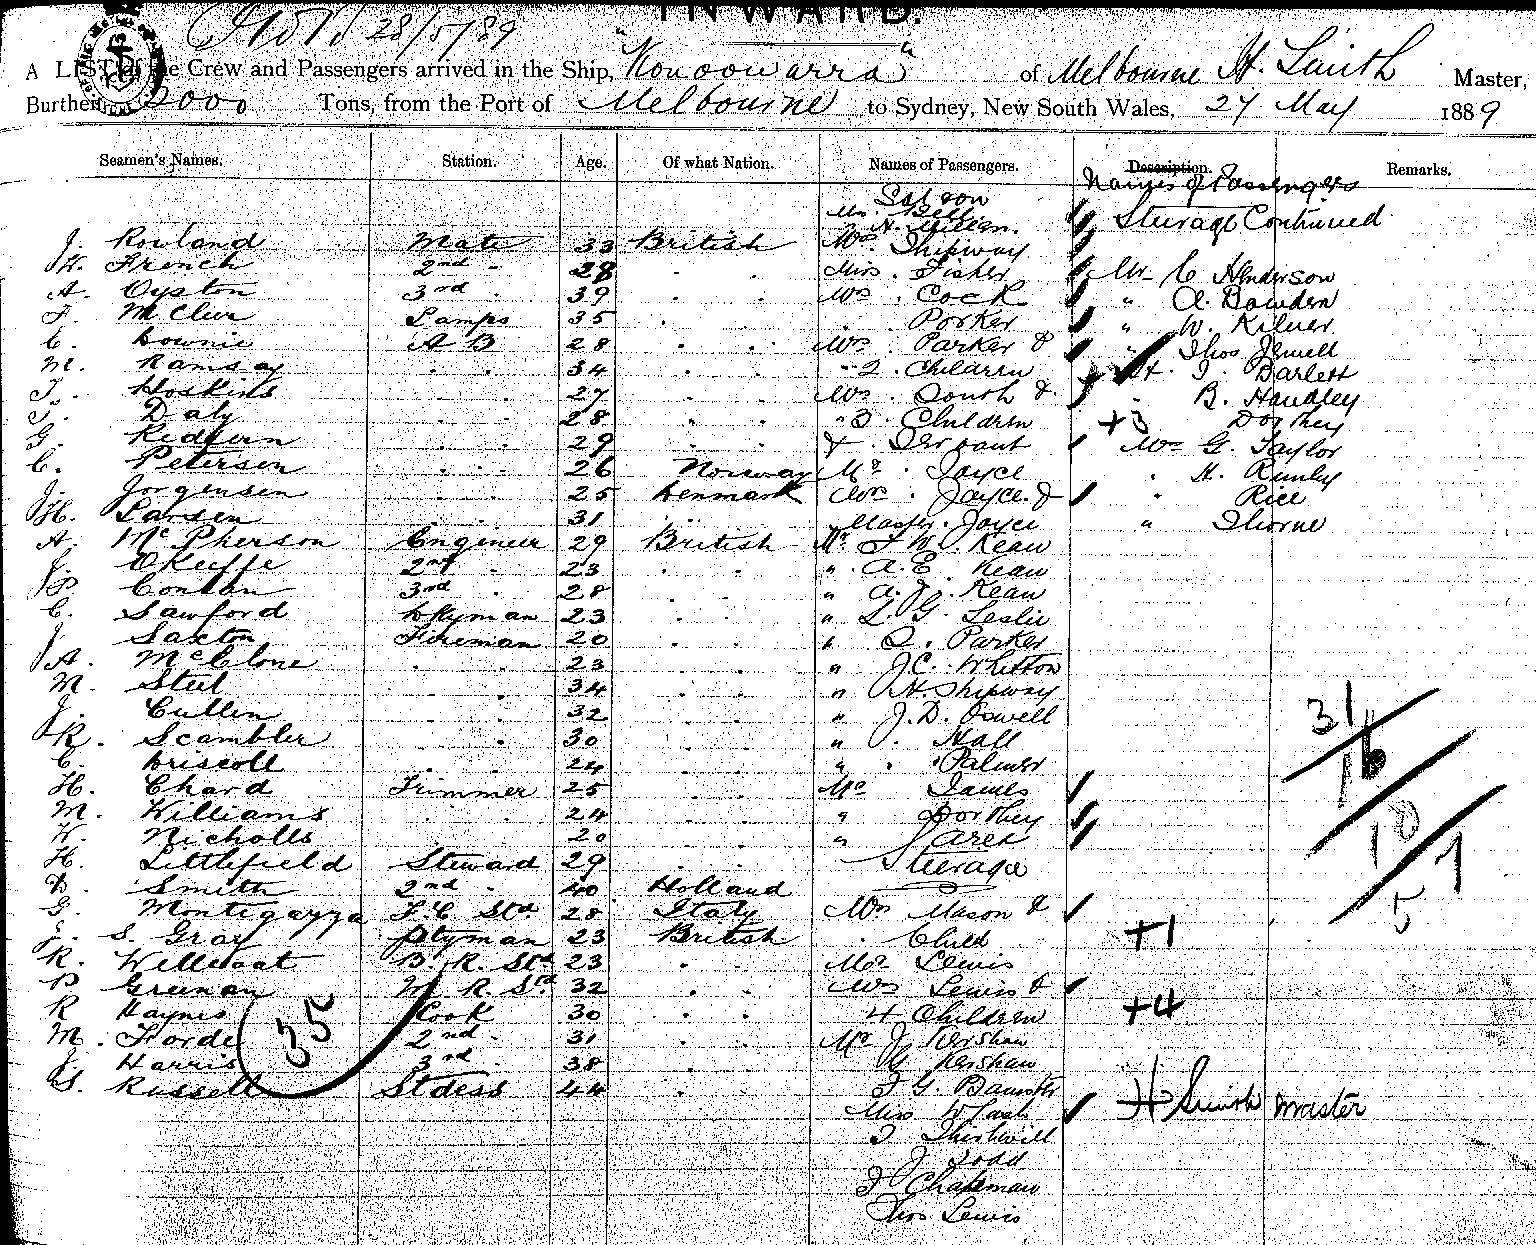 INWARD.
28/5/89
A LIST of the Crew and Passengers arrived in the Ship, "Konoowarra" of Melbourne H. Smith Master,
Burthen 2000 Tons, from the Port of Melbourne to Sydney, New South Wales, 27 May 1889
Seamen's Names. Station. Age. Of what Nation. Names of Passengers. Description. Remarks.
Names of Passengers
Saloon
Mr. Bell
Steerage Continued
J. Rowland Mate 33 British Mrs Shipway
W. French 2nd " 28 " " Miss Fisher Mr C Henderson
A. Oyston 3rd " 39 " " Mrs Cock " A. Bawden
F. McClur Lamps 35 " " Porker " W. Kilner
C. Downie A B 28 " " Mrs Parker & " Thos Jewell
M. Ramsay " " 34 " " 2 Children H. J. Barlett
J. Hoskins " " 27 " " Mrs South & " B. Handley
J. Daly " " 28 " " " 3 Children +3 Dorthey
G. Redfern " " 29 " " & Servant Mrs G. Taylor
C. Peterson " " 26 Norway Mr Joyce " H. Rumby
J. Jorgensen " " 25 Denmark Mrs Joyce & " Rice
H. Larsen " " 31 " " Master Joyce " Thorne
A. McPherson Engineer 29 British Mr F. W. Kean
J. OKeeffe 2nd " 23 " " " A. E. Kean
P. Conlan 3rd " 28 " " " A. J. Kean
C. Sawford Dkyman 23 " " " L. G. Leslie
J. Saxton Fireman 20 " " " S. Parker
A. McClone " " 23 " " " J. C. Whitton
M. Steel " " 34 " " " H. Shipway
J. Cullin " " 32 " " " J. D. Oswell
R. Scambler " " 30 " " " Hall
C. Driscoll " " 24 " " " Palmer
H. Chard Trimmer 25 " " Mr James
M. Williams " " 24 " " " Dorthey
W. Nicholls " " 20 " "
H. Littlefield Steward 29 " " Steerage
D. Smith 2nd " 40 Holland
G. Montigazza F. C Std 28 Italy Mrs Mason &
J. S. Gray Ptyman 23 British " Child +1
R. Willcoat B. R. Std 23 " " Mr Lewis
P Greenan M. R Std 32 " " Mrs Lewis &
R Haynes Cook 30 " " 4 Children +4
M. Forde 2nd " 31 " " Mr J Kershaw
J. Harris 3rd " 38 " Kershaw
S. Russell Stdess 44 " J G. Banister
35
31
16
10
5
1
H Smith Master
Miss
J Thirkwill
J Dodd
J Chapman
Thos Lewis